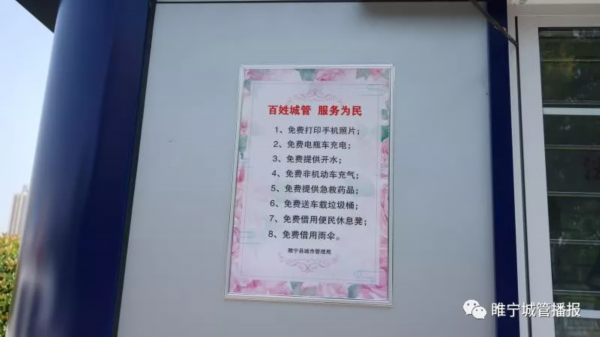 百姓城管 服务为民
1、免费打印手机照片；
2、免费电瓶车充电；
3、免费提供开水；
4、免费非机动车充气；
5、免费提供急救药品；
6、免费送车载垃圾桶；
7、免费借用便民休息凳；
8、免费借用雨伞。
睢宁县城市管理局
睢宁城管播报